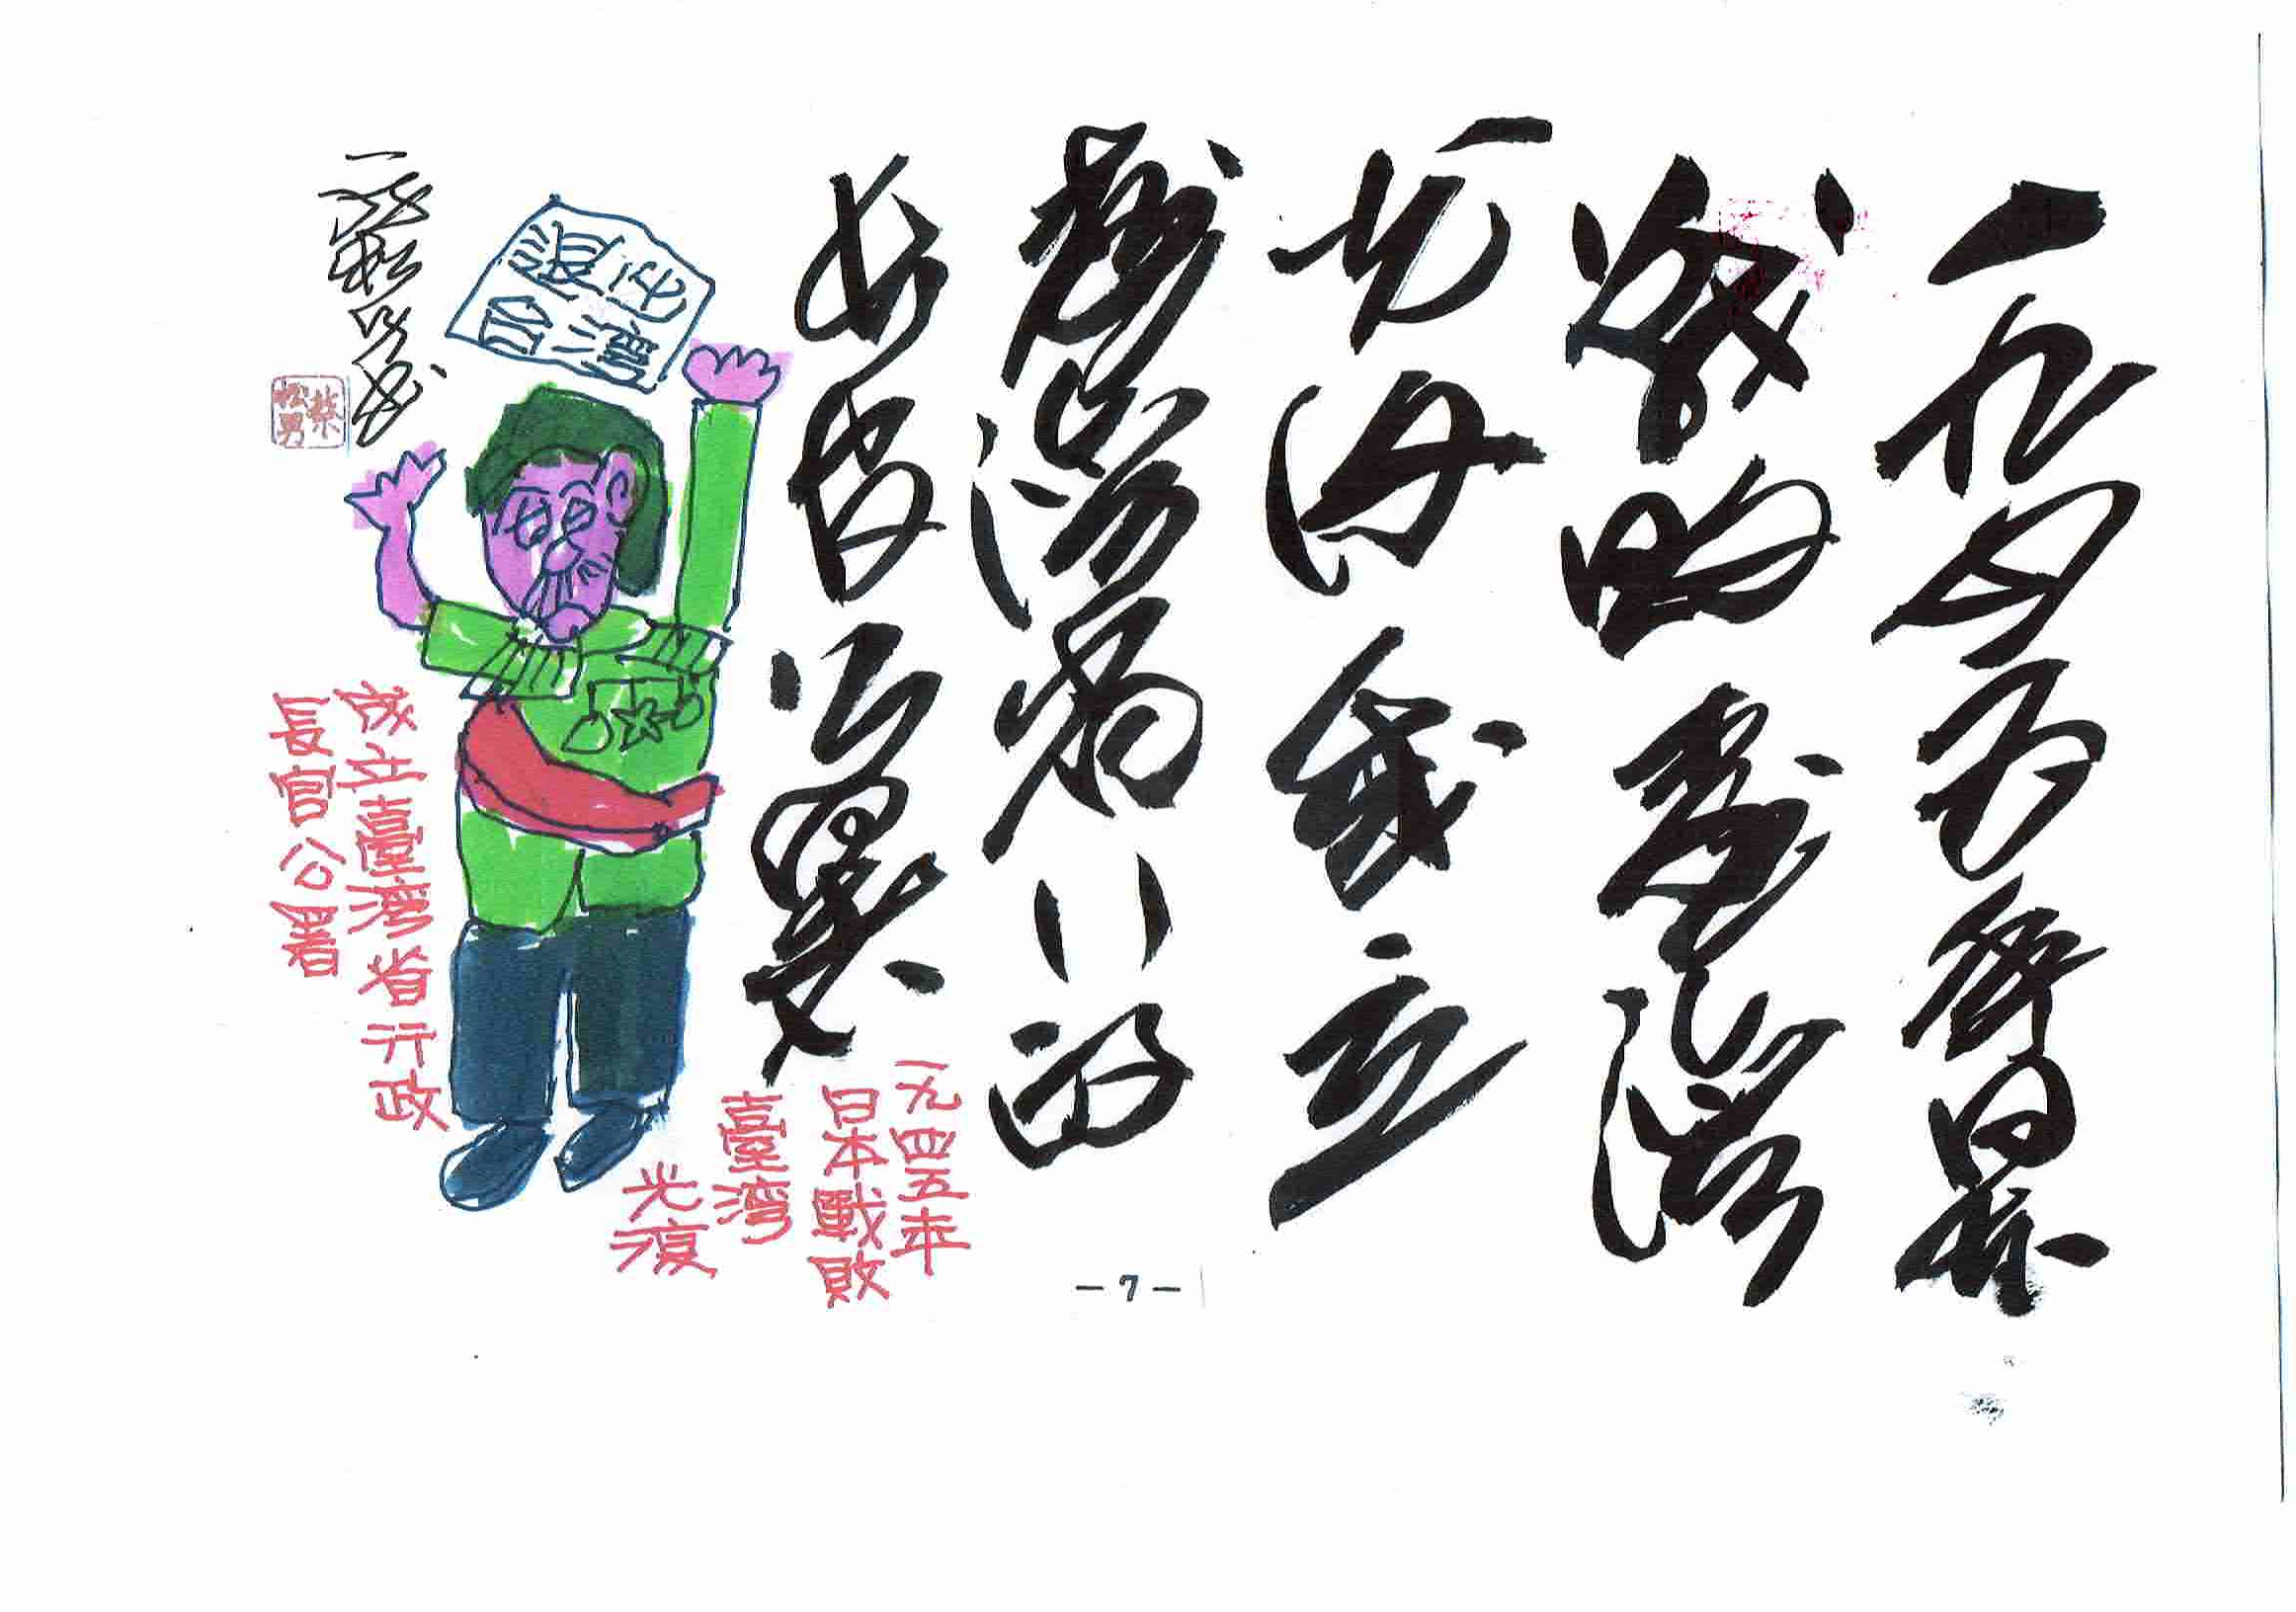 一九四五年日本
戰敗臺灣
光復成立
臺灣省行政
長官公署
一九四五年
日本戰敗
臺灣
光復
退出
台灣
成立臺灣省行政
長官公署
松男
- 7 -